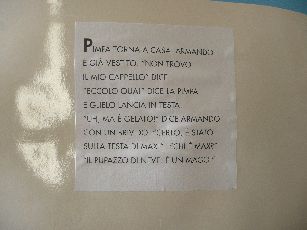 PIMPA TORNA A CASA. ARMANDO
È GIÀ VESTITO. "NON TROVO
IL MIO CAPPELLO" DICE.
"ECCOLO QUA!" DICE LA PIMPA
E GLIELO LANCIA IN TESTA.
"UH, MA È GELATO!" DICE ARMANDO
CON UN BRIVIDO. "CERTO, È STATO
SULLA TESTA DI MAX". "E CHI È MAX?"
"IL PUPAZZO DI NEVE. È UN MAGO!"